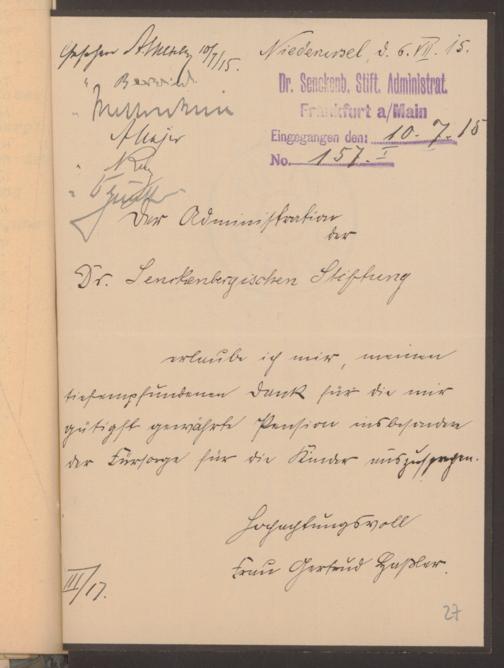 Gesehen 10/7/15.
Niederursel, d. 6. VII. 15.
Dr. Senckenb. Stift. Administrat.
Frankfurt a/Main
Eingegangen den: 10. 7. 15
No. 157. I
Der Administration
der
Dr. Senckenbergischen Stiftung
erlaube ich mir, meinen
tiefempfundenen Dank für die mir
gütigst gewährte Pension insbesondere
der Fürsorge für die Kinder auszusprechen.
Hochachtungsvoll
Frau Gertrud Haßler.
III/17.
27